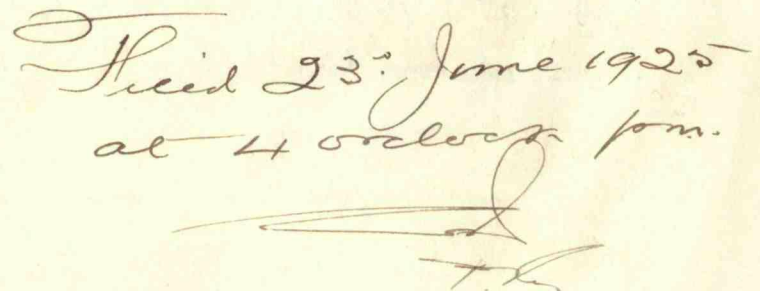 Filed 23. June 1925
at 4 oclock pm.